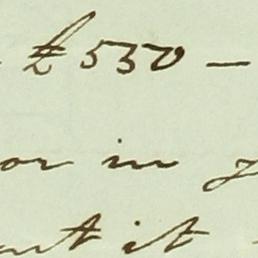 £550 —
or in
it